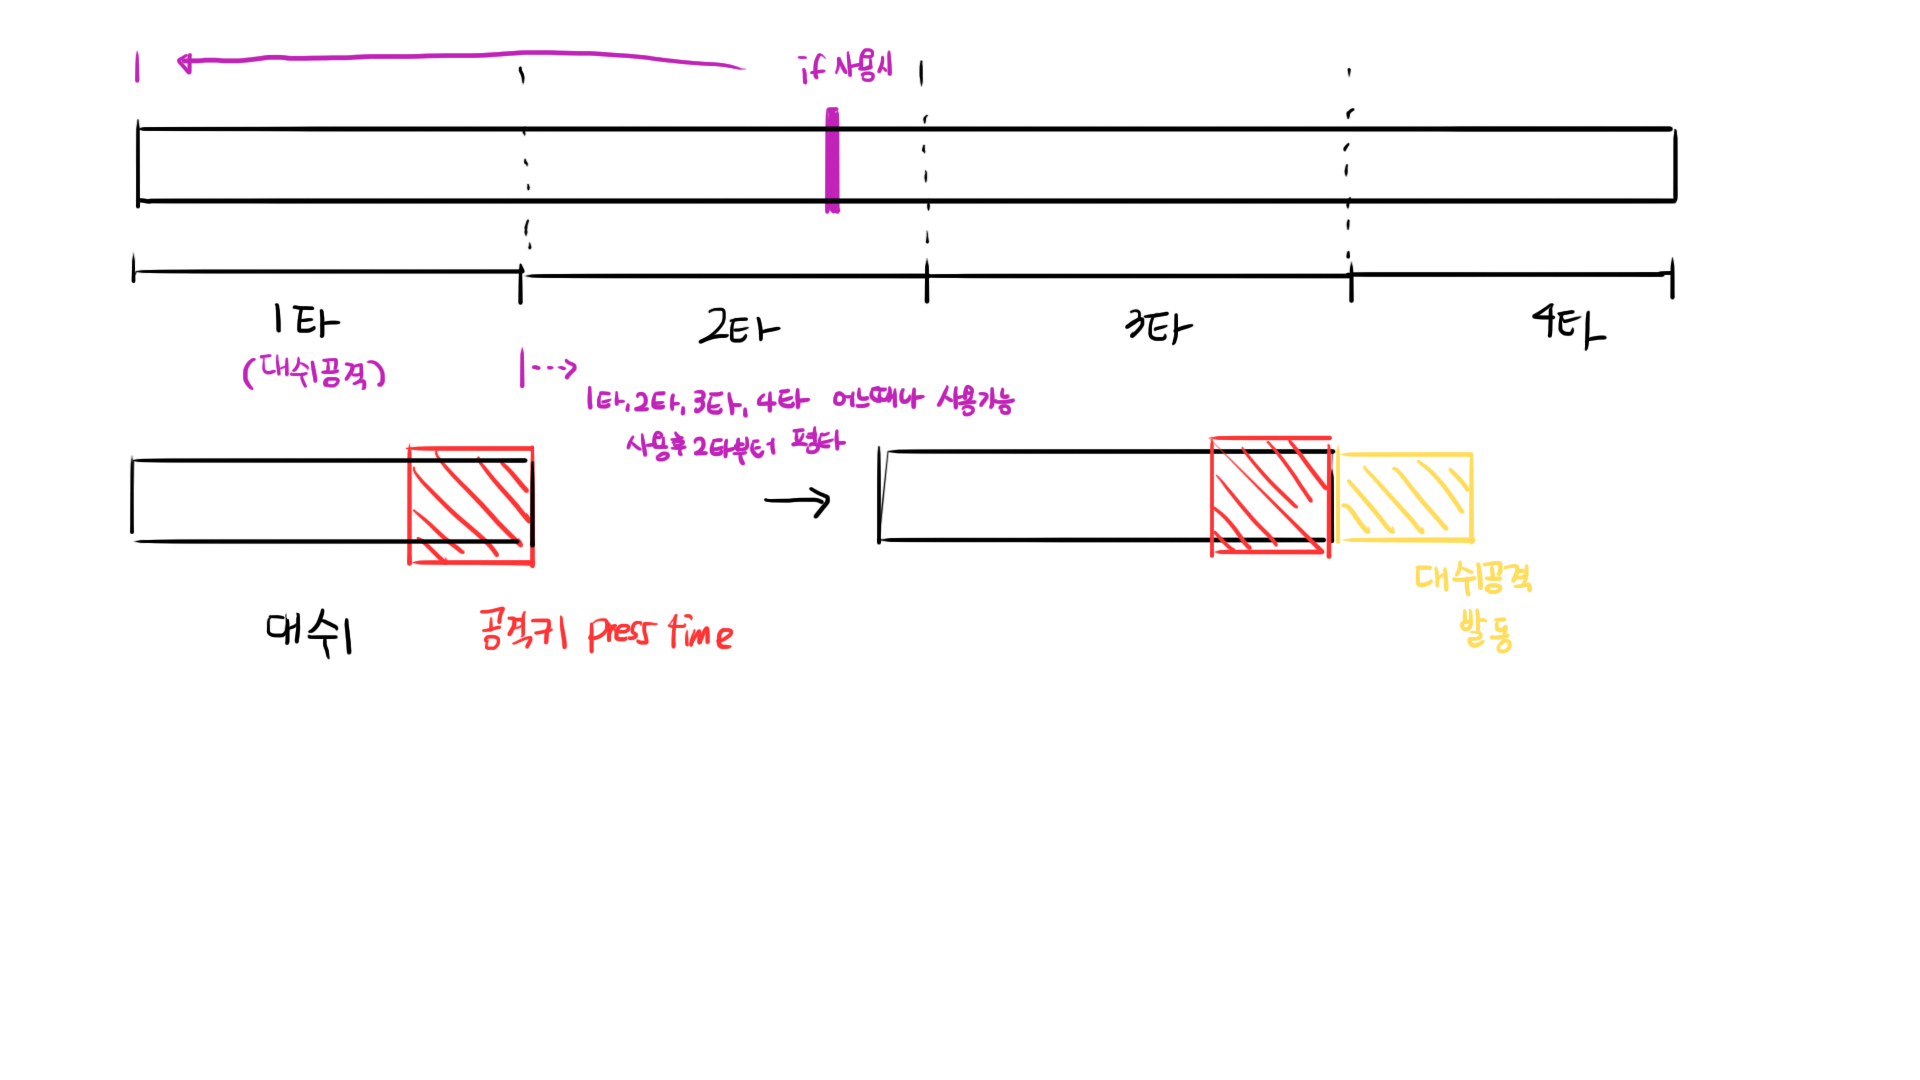 if 사용시
1타
2타
3타
4타
(대쉬공격)
1타, 2타, 3타, 4타 어느때나 사용가능
사용후 2타부터 평타
대쉬
공격키 press time
대쉬공격
발동